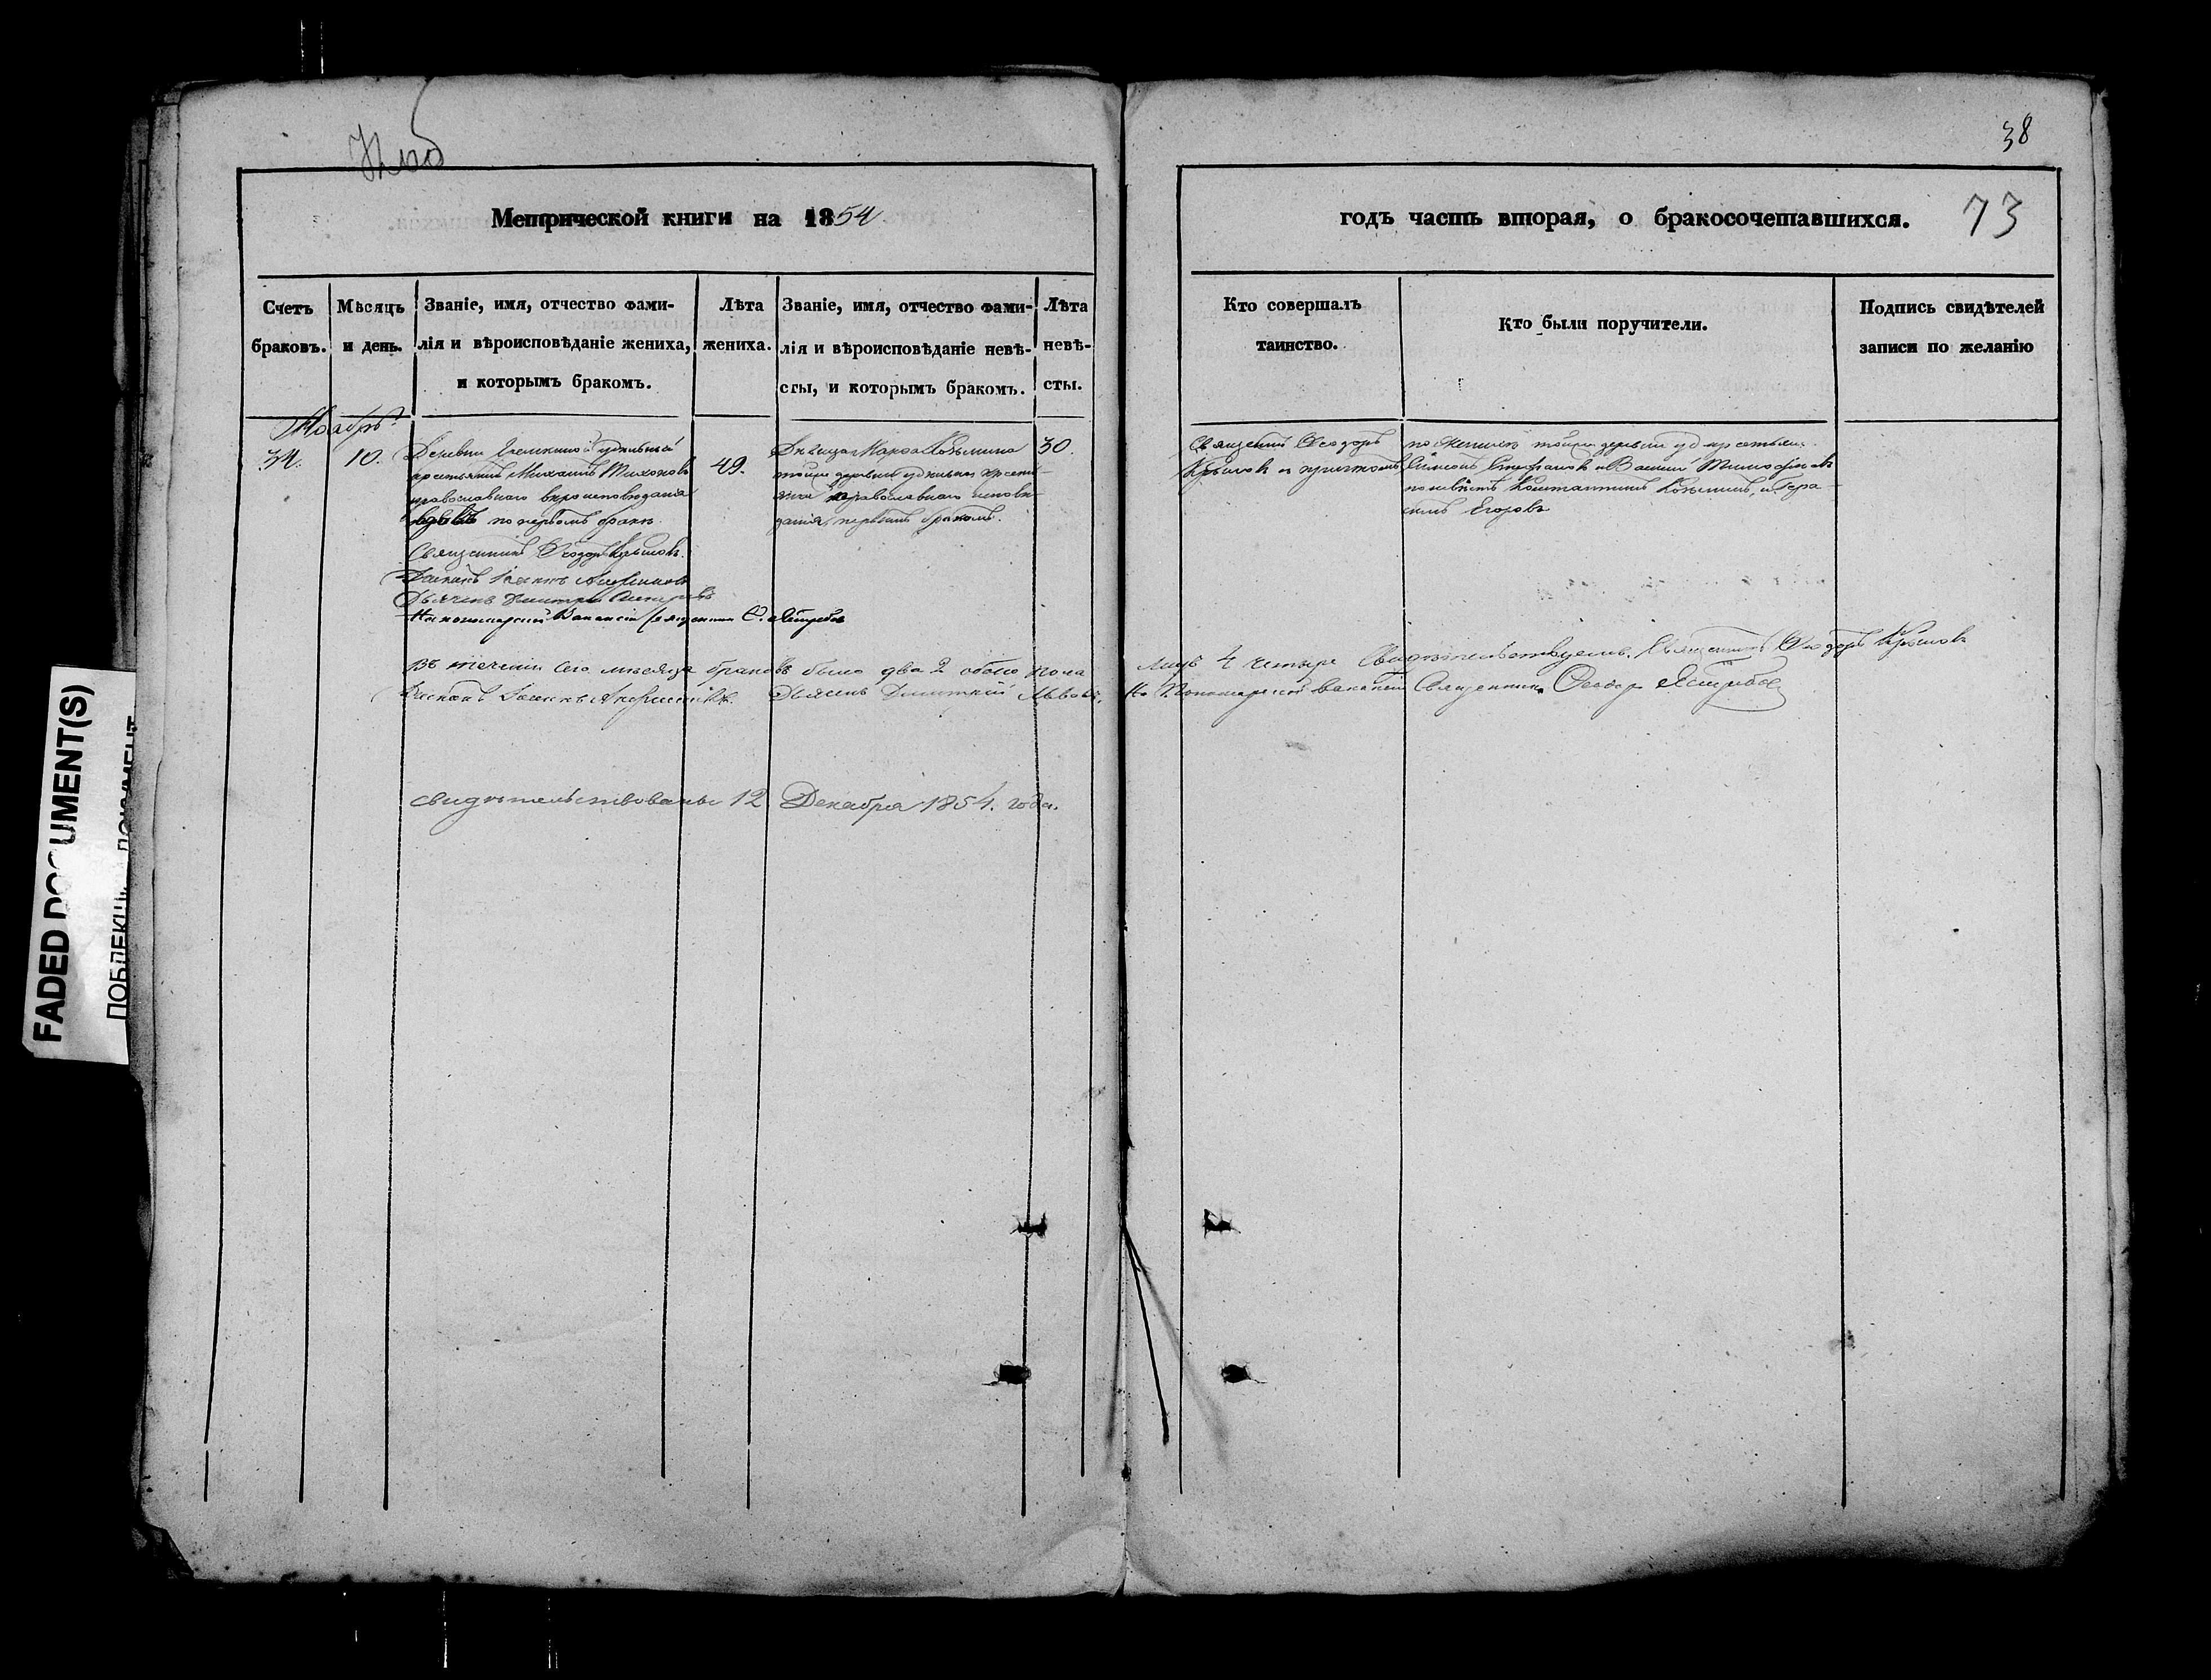 38
Метрической книги на 1854
годъ часть вторая, о бракосочетавшихся. 73
Счетъ браковъ.
Мѣсяцъ и день.
Званіе, имя, отчество фами-
лія и вѣроисповѣданіе жениха,
и которымъ бракомъ.
Лѣта
жениха.
Званіе, имя, отчество фами-
лія и вѣроисповѣданіе невѣ-
сты, и которымъ бракомъ.
Лѣта
невѣ-
сты.
Кто совершалъ
таинство.
Кто были поручители.
Подпись свидѣтелей
записи по желанію
Ноябрь
10.
Деревни удѣльный
крестьянинъ Михаилъ Тихоновъ
православнаго вѣроисповѣданія
по первомъ бракѣ.
49.
Дѣвица Марѳа Козьмина
тойже деревни удѣльная кресть-
янка православнаго исповѣ-
данія, первымъ бракомъ.
30.
Священникъ Ѳеодоръ
Крыловъ съ причтомъ
по женихѣ тойже деревни уд крестьяне
Стефановъ и Василій Тимофеевъ
по невѣстѣ Константинъ Козьминъ, и Гера-
симъ Егоровъ
Священникъ Ѳеодоръ Крыловъ.
Діаконъ Іоаннъ
Дьячекъ Дмитрій
На пономарской Вакансіи священникъ Ѳ. Ястребовъ
Въ теченіи сего мѣсяца браковъ было два 2 обоего пола
лицъ 4 четыре Свидѣтельствуемъ. Священникъ Ѳеодоръ Крыловъ
Діаконъ Іоаннъ Дьячекъ Димитрій Львовъ.
На Пономарской вакансіи Священникъ Ѳеодоръ Ястребовъ
свидѣтельствованы 12 Декабря 1854. года.
FADED DOCUMENT(S)